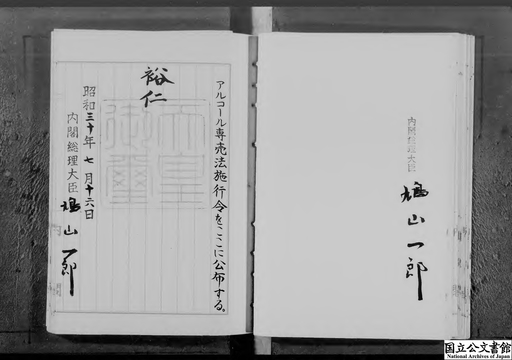 アルコール専売法施行令をここに公布する。
裕仁
天皇御璽
昭和三十年七月十六日
内閣総理大臣 鳩山一郎
内閣総理大臣
鳩山一郎
国立公文書館
National Archives of Japan